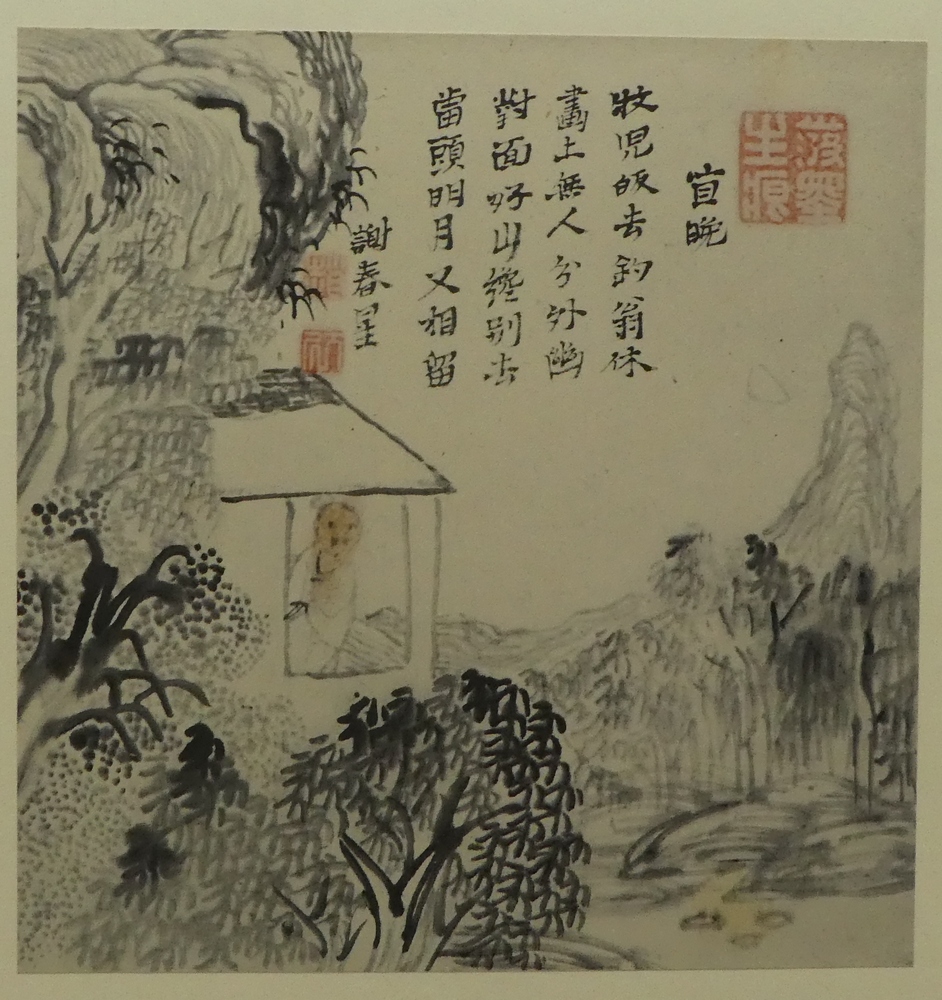 潑墨
生痕
宜晚
牧児皈去釣翁休
畫上無人分外幽
對面好山纔別去
當頭明月又相留
謝春星